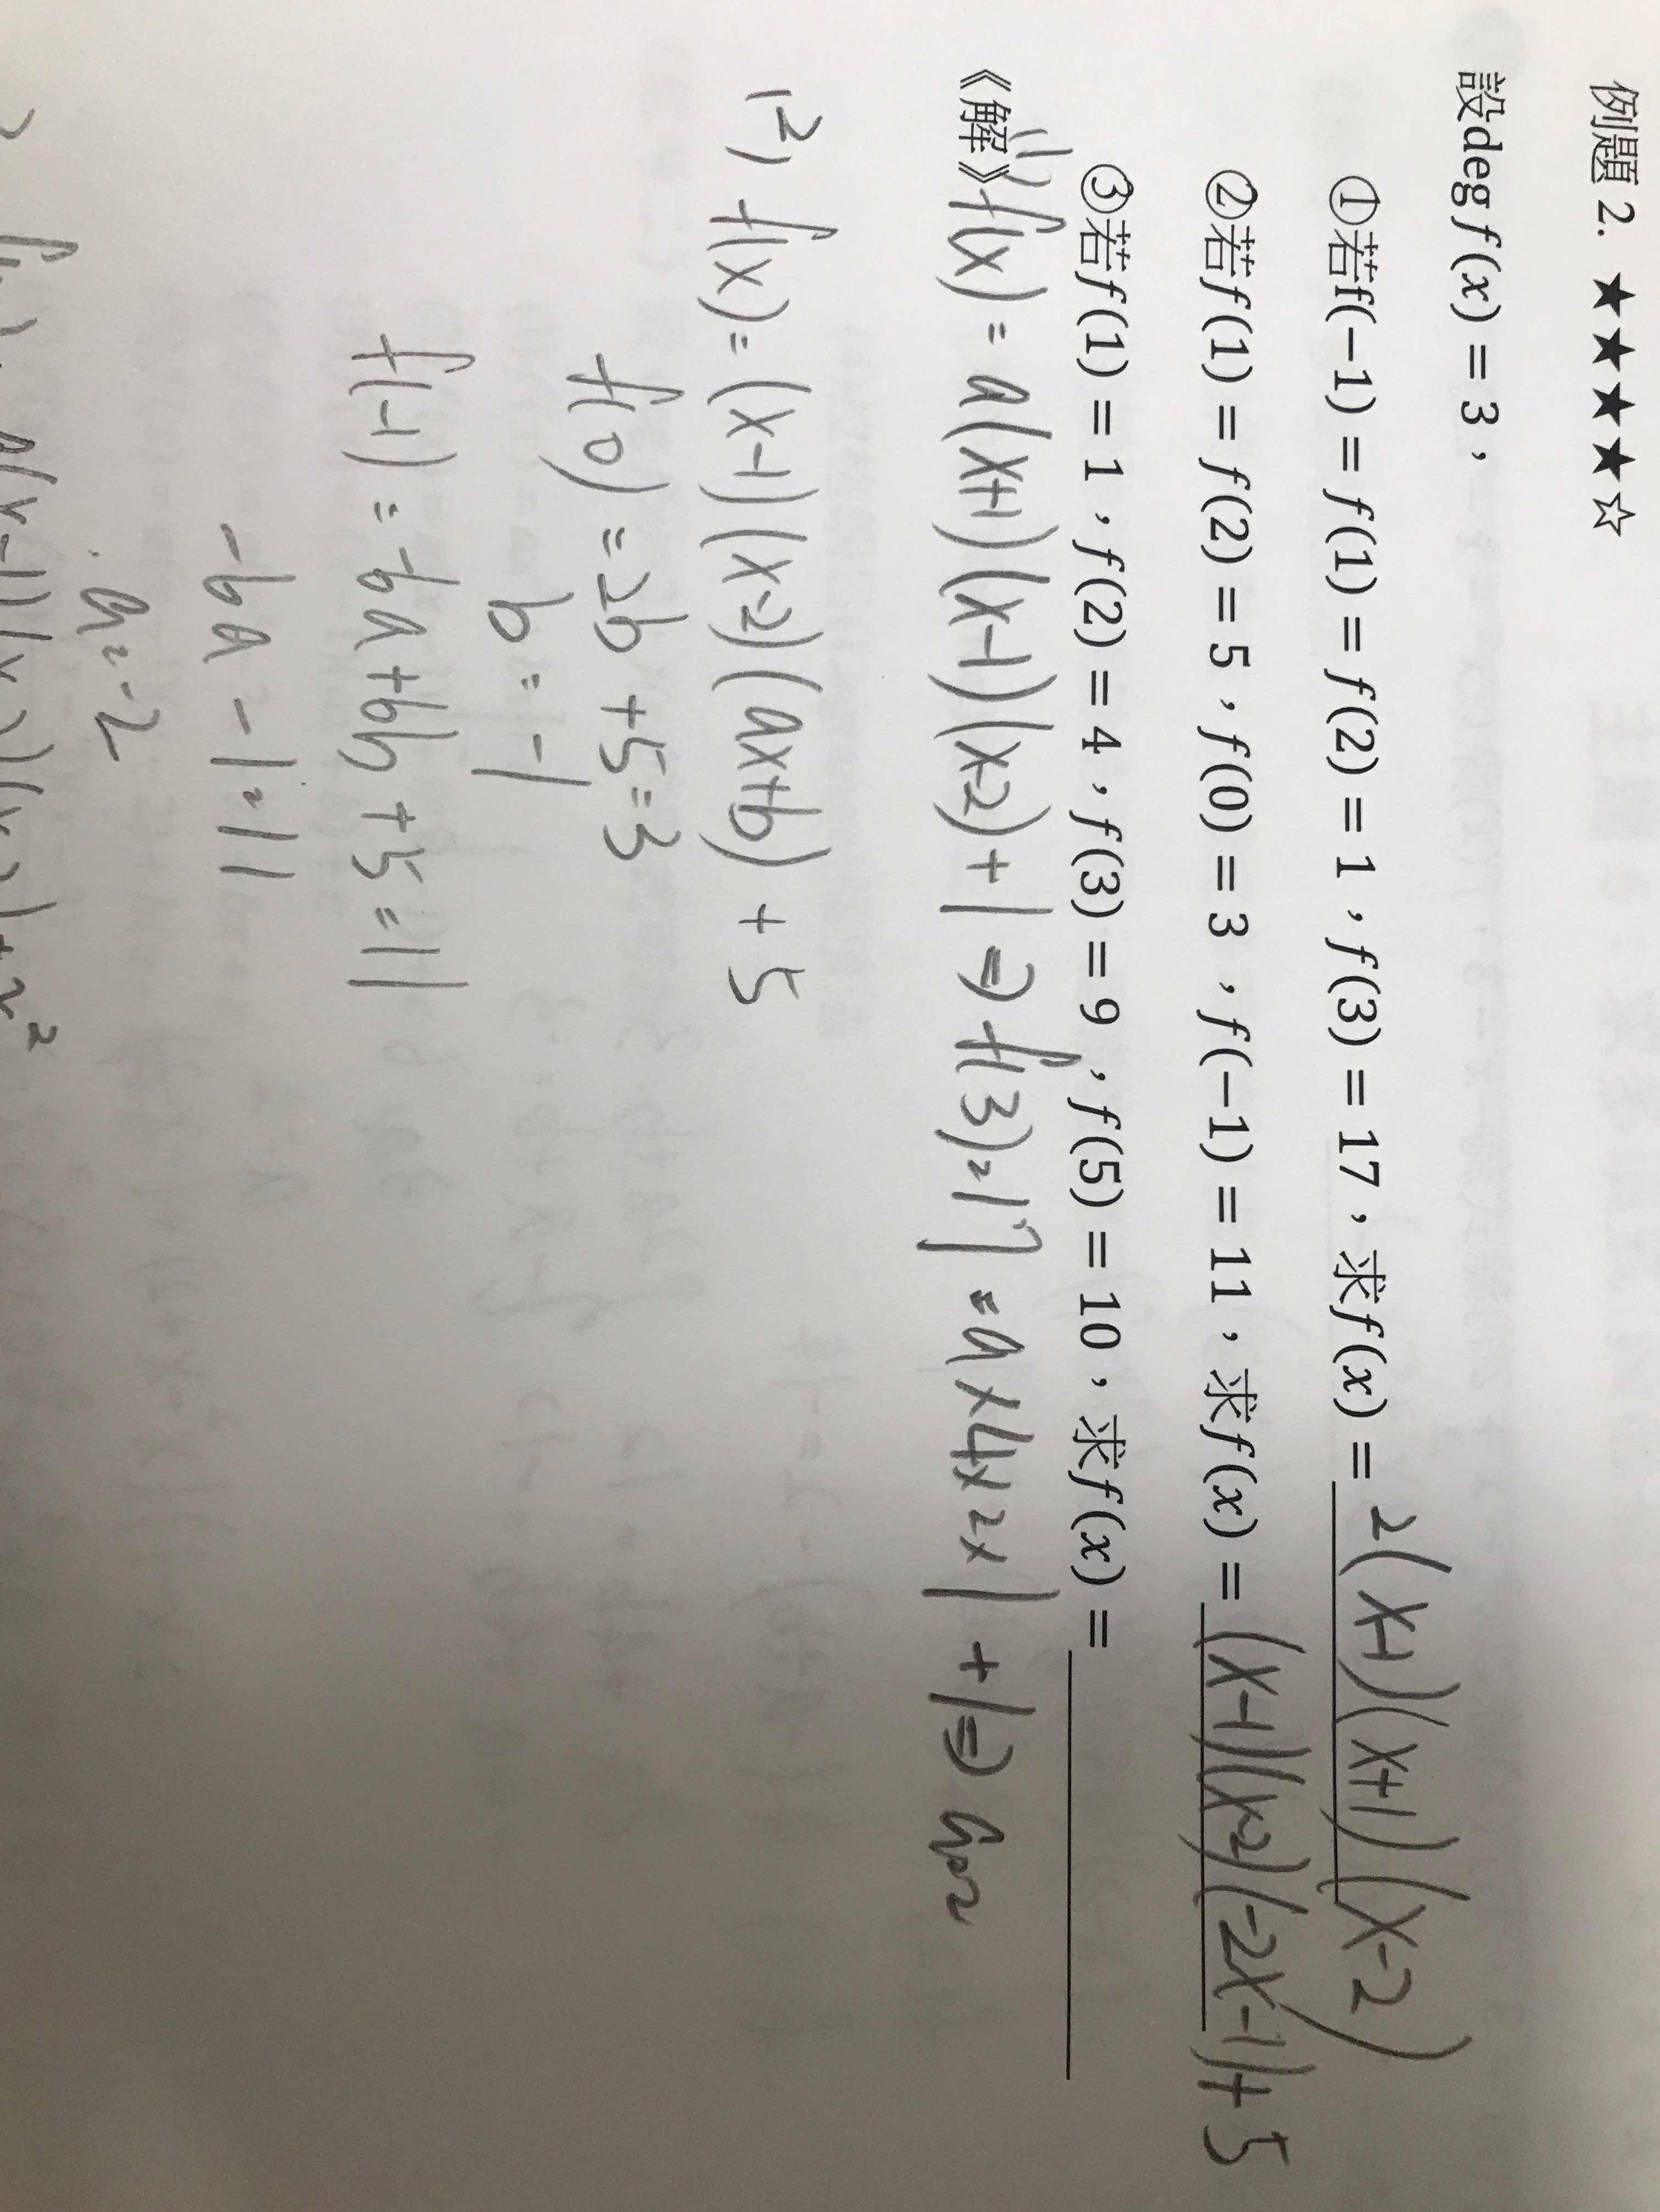 例題 2. ★★★★☆
設deg f(x) = 3，
①若f(−1) = f(1) = f(2) = 1，f(3) = 17，求f(x) = 2(x-1)(x+1)(x-2)
②若f(1) = f(2) = 5，f(0) = 3，f(−1) = 11，求f(x) = (x-1)(x-2)(-2x-1)+5
③若f(1) = 1，f(2) = 4，f(3) = 9，f(5) = 10，求f(x) =
《解》(1) f(x) = a(x+1)(x-1)(x-2)+1 ⇒ f(3)=17 = a×4×2×1+1 ⇒ a=2
(2) f(x) = (x-1)(x-2)(ax+b)+5
f(0) = 2b+5=3
b=-1
f(-1) = -6a+6b+5=11
-6a-1=11
a=-2